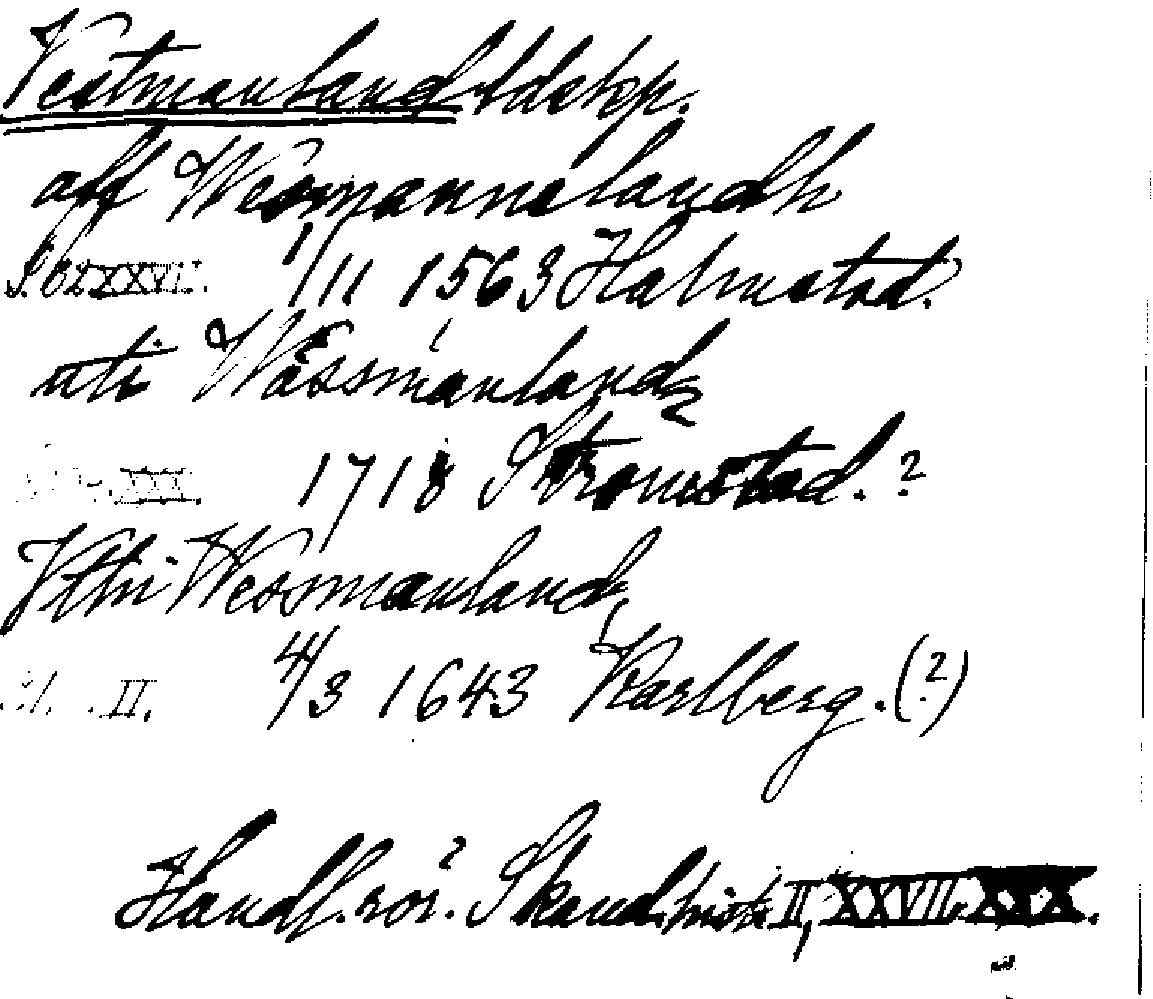 Vestmanland, ldskp.
aff Wesmannelandh
S. 62 XXVII. 1/11 1563 Halmstad.
uti Wässmanland
XXX. 1718 Strömstad.?
Vthi Wesmanland,
31. II. 4/3 1643 Karlberg.(?)
Handl. rör. Skand. hist. II, XXVII. XXX.